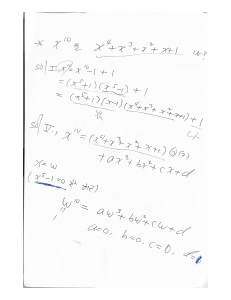 * x¹⁰ 을 x⁴+x³+x²+x+1
sol I: x¹⁰ = x¹⁰-1+1
= (x⁵+1)(x⁵-1)+1
= (x⁵+1)(x-1)(x⁴+x³+x²+x+1)+1
sol II: x¹⁰ = (x⁴+x³+x²+x+1)Q(x)
+ax³+bx²+cx+d
x=w
(x⁵-1=0
w¹⁰ = aw³+bw²+cw+d
1
a=0, b=0, c=0, d=1